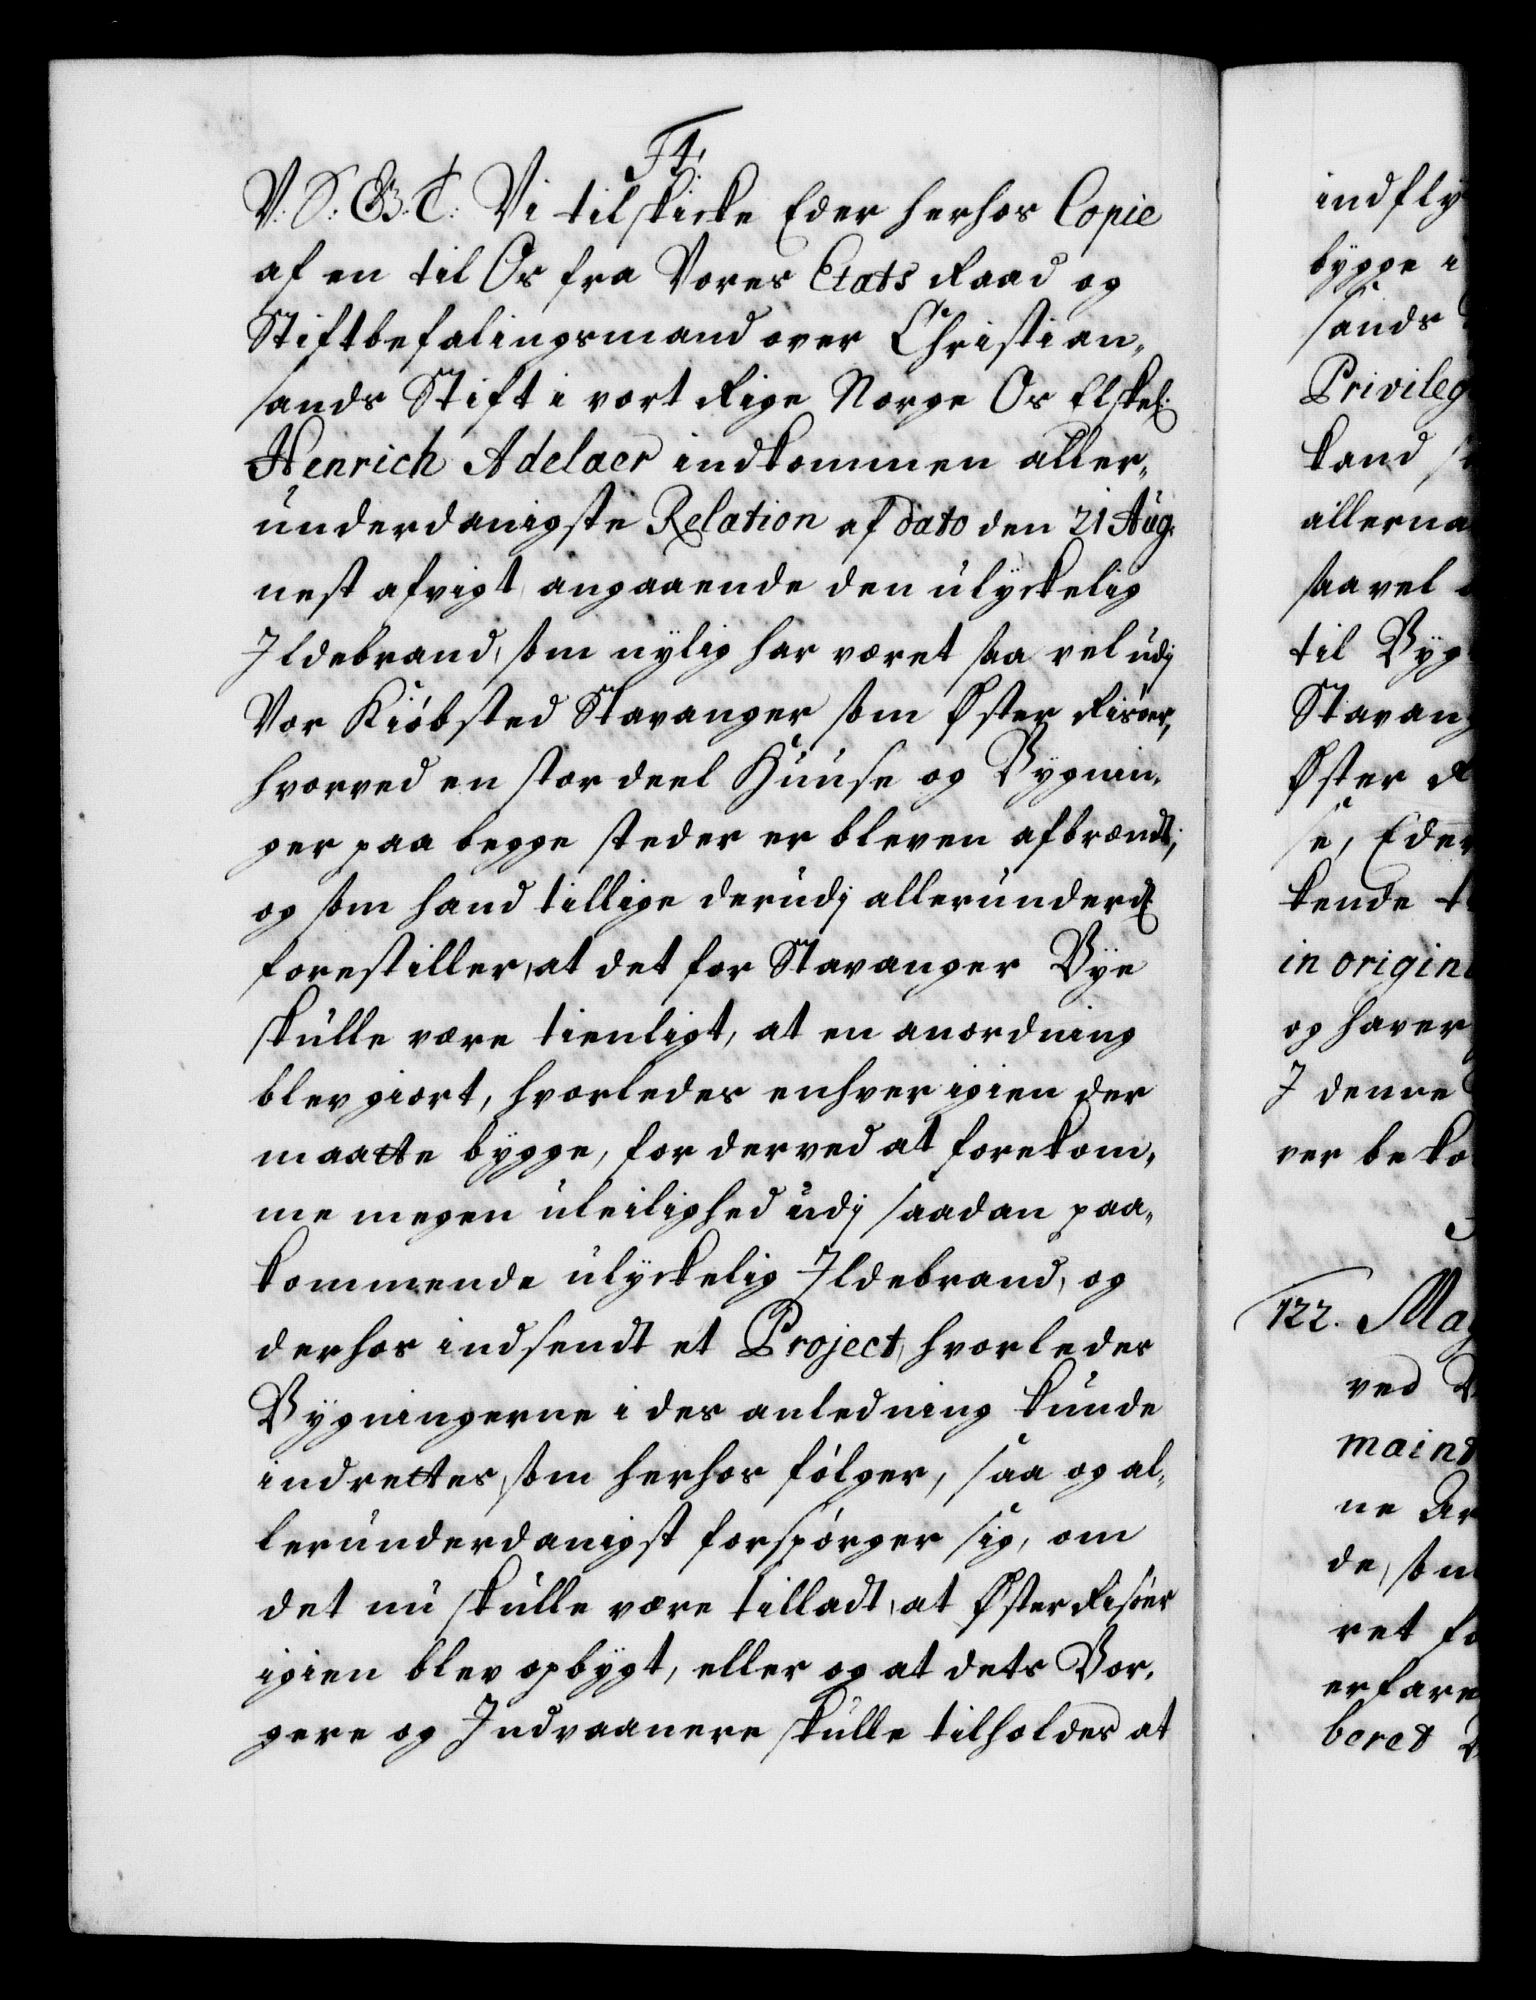 F4.
V. S. G. T. Vi tilskicke Eder herhos Copie
af en til Os fra Vores Etats Raad og
Stiftbefalingsmand over Christian„
sands Stift i vort Rige Norge Os Elskel.
Henrich Adelaer indkommen aller„
underdanigste Relation af dato den 21 Aug.
nest afvigt, angaaende den ulyckelig
Ildebrand, som nylig har været saa vel udj
Vor Kiöbsted Stavanger som Øster Risöer,
hvorved en stor deel Huuse og Bygnin„
ger paa begge steder er bleven afbrændt;
og som hand tillige derudj allerunderd.
forestiller, at det for Stavanger Bye
skulle være tienligt, at en anordning
blev giort, hvorledes enhver igien der
maatte bygge, for derved at forekom„
me megen uleilighed udj saadan paa„
kommende ulyckelig Ildebrand, og
derhos indsendt et Project, hvorledes
Bygningerne i des anledning kunde
indrettes, som herhos fölger, saa og al„
lerunderdanigst forspörger sig, om
det nu skulle være tilladt, at Øster Risöer
igien blev opbygt, eller og at dets Bor„
gere og Indvaanere skulle tilholdes at
indfly
bygge i
sands
Privileg
kand
allerna
saavel
til Byg
Stavan
Øster R
se, Eder
kende
in origin
og haver
I denne
ver beko
122. May
ved
maind
ne Ar
de, som
ret fo
erfare
beret